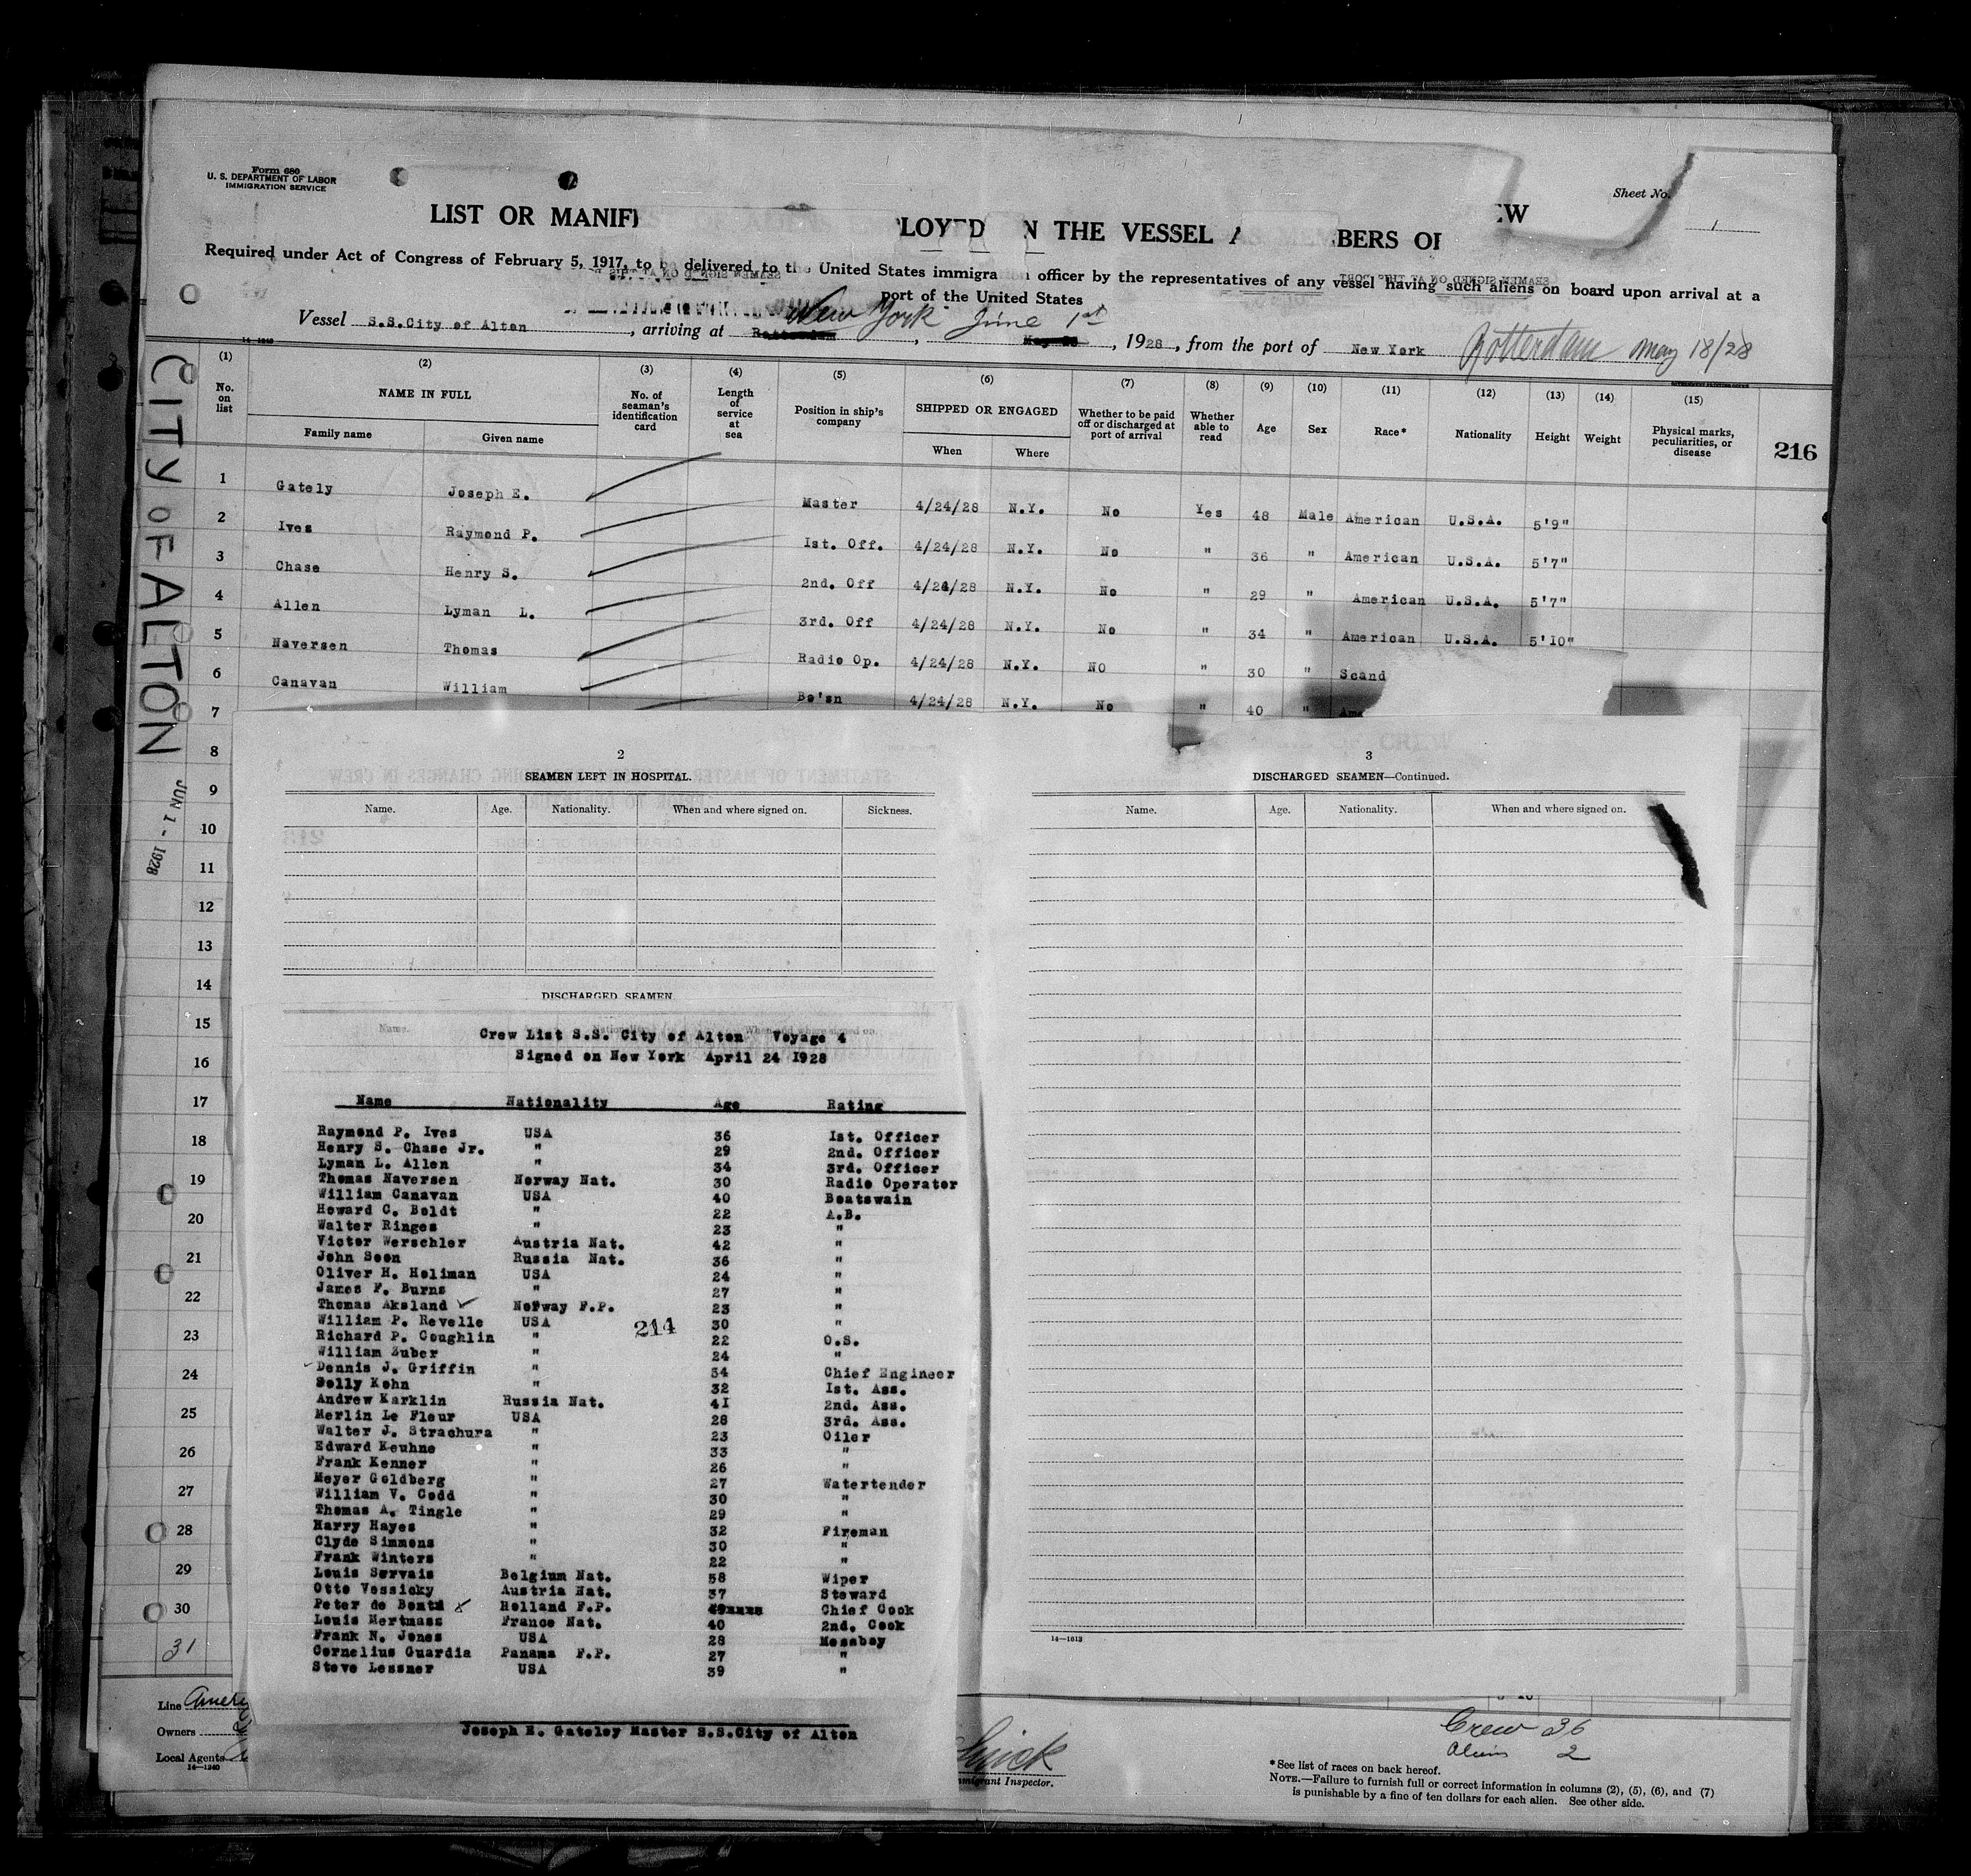 Form 680
U. S. DEPARTMENT OF LABOR
IMMIGRATION SERVICE
Sheet No. 1
LIST OR MANIF LOYED N THE VESSEL A BERS OF EW
Required under Act of Congress of February 5, 1917, to be delivered to the United States immigra officer by the representatives of any vessel having such aliens on board upon arrival at a
port of the United States
Vessel S.S.City of Alton, arriving at Rotterdam New York, June 1st, 1928, from the port of New York Rotterdam May 18/28
14—1240
(1) (2) (3) (4) (5) (6) (7) (8) (9) (10) (11) (12) (13) (14) (15)
No. on list NAME IN FULL No. of seaman's identification card Length of service at sea Position in ship's company SHIPPED OR ENGAGED Whether to be paid off or discharged at port of arrival Whether able to read Age Sex Race* Nationality Height Weight Physical marks, peculiarities, or disease 216
Family name Given name When Where
1 Gately Joseph E. Master 4/24/28 N.Y. No Yes 48 Male American U.S.A. 5'9"
2 Ives Raymond P. Ist. Off. 4/24/28 N.Y. No " 36 " American U.S.A. 5'7"
3 Chase Henry S. 2nd. Off 4/24/28 N.Y. No " 29 " American U.S.A. 5'7"
4 Allen Lyman L. 3rd. Off 4/24/28 N.Y. No " 34 " American U.S.A. 5'10"
5 Naversen Thomas Radio Op. 4/24/28 N.Y. NO " 30 " Scand
6 Canavan William Bo'sn 4/24/28 N.Y. No " 40 " Ame
7
8
9
10
11
12
13
14
15
16
17
18
19
20
21
22
23
24
25
26
27
28
29
30
31
CITY OF ALTON
JUN 1 - 1928
2
SEAMEN LEFT IN HOSPITAL.
Name. Age. Nationality. When and where signed on. Sickness.
DISCHARGED SEAMEN.
Name. Nationality. When and where signed on.
Crew List S.S. City of Alton Voyage 4
Signed on New York April 24 I928
Name Nationality Age Rating
Raymond P. Ives USA 36 Ist. Officer
Henry S. Chase Jr. " 29 2nd. Officer
Lyman L. Allen " 34 3rd. Officer
Thomas Naversen Norway Nat. 30 Radio Operator
William Canavan USA 40 Boatswain
Howard C. Boldt " 22 A.B.
Walter Ringes " 23 "
Victor Werschler Austria Nat. 42 "
John Soon Russia Nat. 36 "
Oliver H. Holiman USA 24 "
James F. Burns " 27 "
Thomas Aksland Norway F.P. 23 "
William P. Revelle USA 30 "
Richard P. Coughlin " 22 O.S.
William Zuber " 24 "
Dennis J. Griffin " 54 Chief Engineer
Solly Kohn " 32 Ist. Ass.
Andrew Karklin Russia Nat. 4I 2nd. Ass.
Merlin Le Fleur USA 28 3rd. Ass.
Walter J. Strachura " 23 Oiler
Edward Keuhne " 33 "
Frank Kenner " 26 "
Meyer Goldberg " 27 Watertender
William V. Codd " 30 "
Thomas A. Tingle " 29 "
Harry Hayes " 32 Fireman
Clyde Simmons " 30 "
Frank Winters " 22 "
Louis Servais Belgium Nat. 58 Wiper
Otto Vessicky Austria Nat. 37 Steward
Peter de Holland F.P. Chief Cook
Louis Mertmass France Nat. 40 2nd. Cook
Frank N. Jones USA 28 Messboy
Cornelius Guardia Panama F.P. 27 "
Steve Lessner USA 39 "
214
Joseph E. Gateley Master S.S.City of Alton
3
DISCHARGED SEAMEN—Continued.
Name. Age. Nationality. When and where signed on.
14—1613
Line Amer
Owners
Local Agents
14—1240
migrant Inspector.
Crew 36
Aliens 2
* See list of races on back hereof.
NOTE.—Failure to furnish full or correct information in columns (2), (5), (6), and (7)
is punishable by a fine of ten dollars for each alien. See other side.